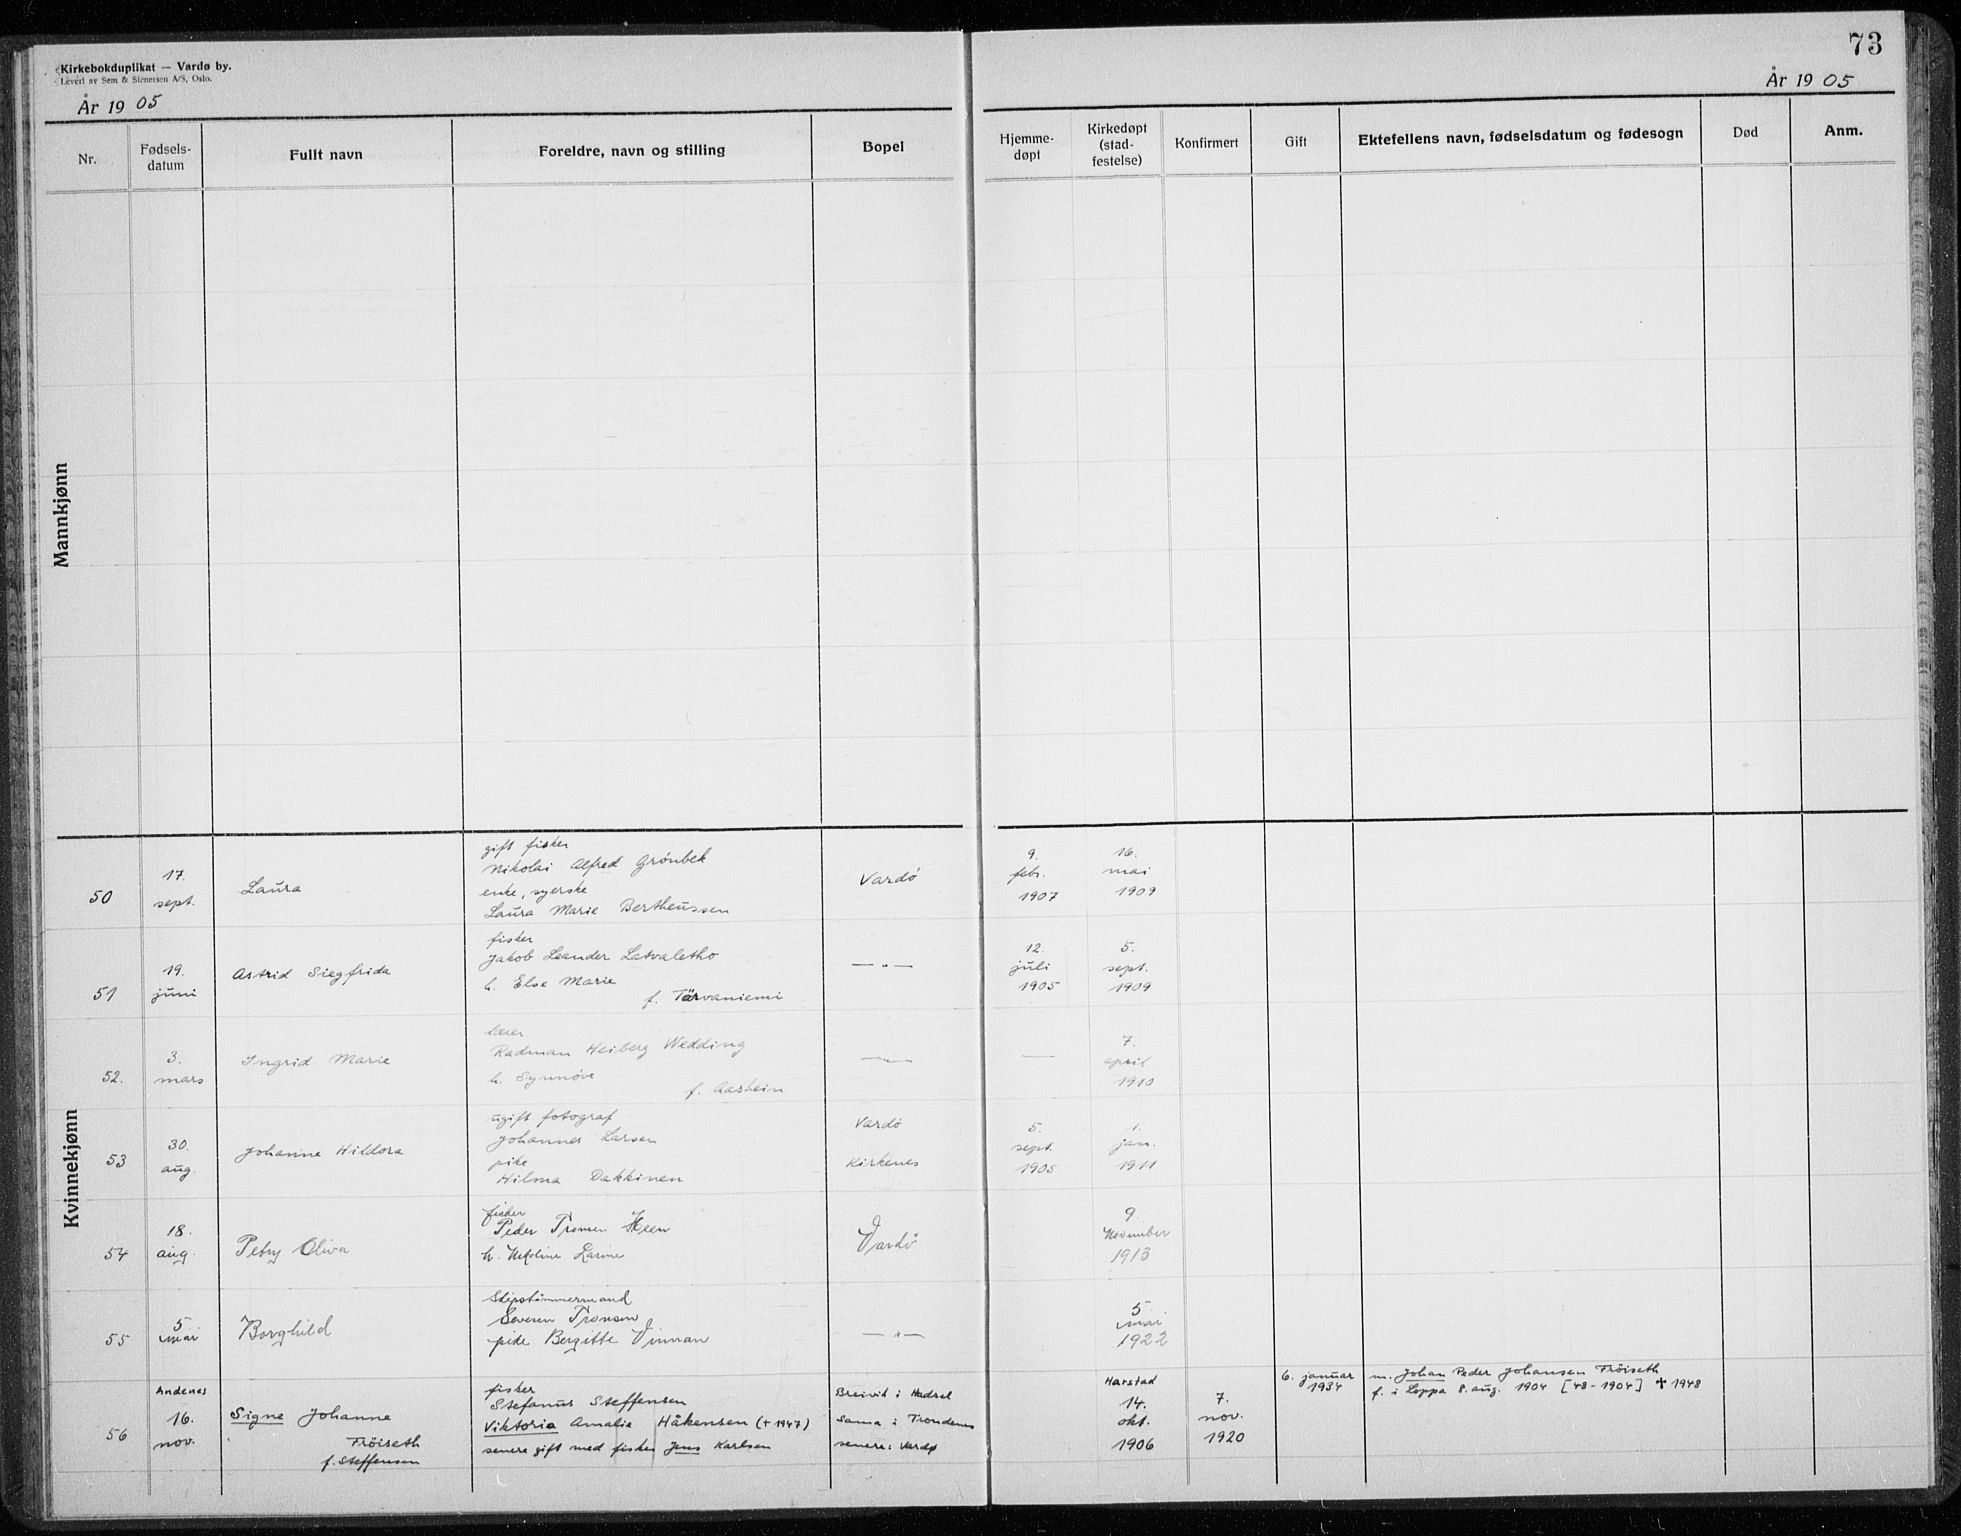 Kirkebokduplikat — Vardø by.
Levert av Sem & Stenersen A/S, Oslo.
År 19 05
73
År 19 05
Nr.
Fødsels-
datum
Fullt navn
Foreldre, navn og stilling
Bopel
Hjemme-
døpt
Kirkedøpt
(stad-
festelse)
Konfirmert
Gift
Ektefellens navn, fødselsdatum og fødesogn
Død
Anm.
Mannkjønn
Kvinnekjønn
50
17.
sept.
Laura
gift fisker
Nikolai Alfred Grönbek
enke, syerske
Laura Marie Bertheussen
Vardö
9.
febr.
1907
16.
mai
1909
51
19.
juni
Astrid Siegfrida
fisker
Jakob Leander Latvaletho
h. Else Marie
f. Tärvaniemi
— " —
12.
juli
1905
5.
sept.
1909
52.
3.
mars
Ingrid Marie
lærer
Radman Heiberg Wedding
h. Synnöve
f. Aasheim
— " —
—
7.
april
1910
53
30.
aug.
Johanne Hildora
ugift fotograf
Johannes Larsen
pike
Hilma Dakkinen
Vardö
Kirkenes
5.
sept.
1905
1.
jan.
1911
54
18.
aug.
Petry Oliva
fisker
Peder Tronsen Heen
h. Larine
Vardö
9.
November
1913
55
5
mai
Borghild
Skipstömmermand
Severin Tronsen
pike Bergitte Vinnan
— " —
5
mai
1922
56
Andenes
16.
nov.
Signe Johanne
Fröiseth
f. Steffensen
fisker
Stefanus Steffensen
Viktoria Amalie Håkensen (+ 1947)
senere gift med fisker Jens Karlsen
Breivik i Hadsel
Sama i Trondenes
senere: Vardø
Harstad
14.
okt.
1906
7.
nov.
1920
6. januar
1934
m. Johan Peder Johansen Fröiseth
f. i Loppa 8. aug. 1904 [48-1904] + 1948